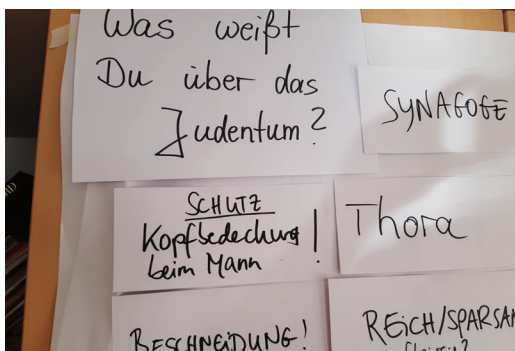 Was weißt
Du über das
Judentum?
SYNAGOGE
SCHUTZ
Kopfbedeckung!
beim Mann
Thora
BESCHNEIDUNG!
REICH/SPARSAM